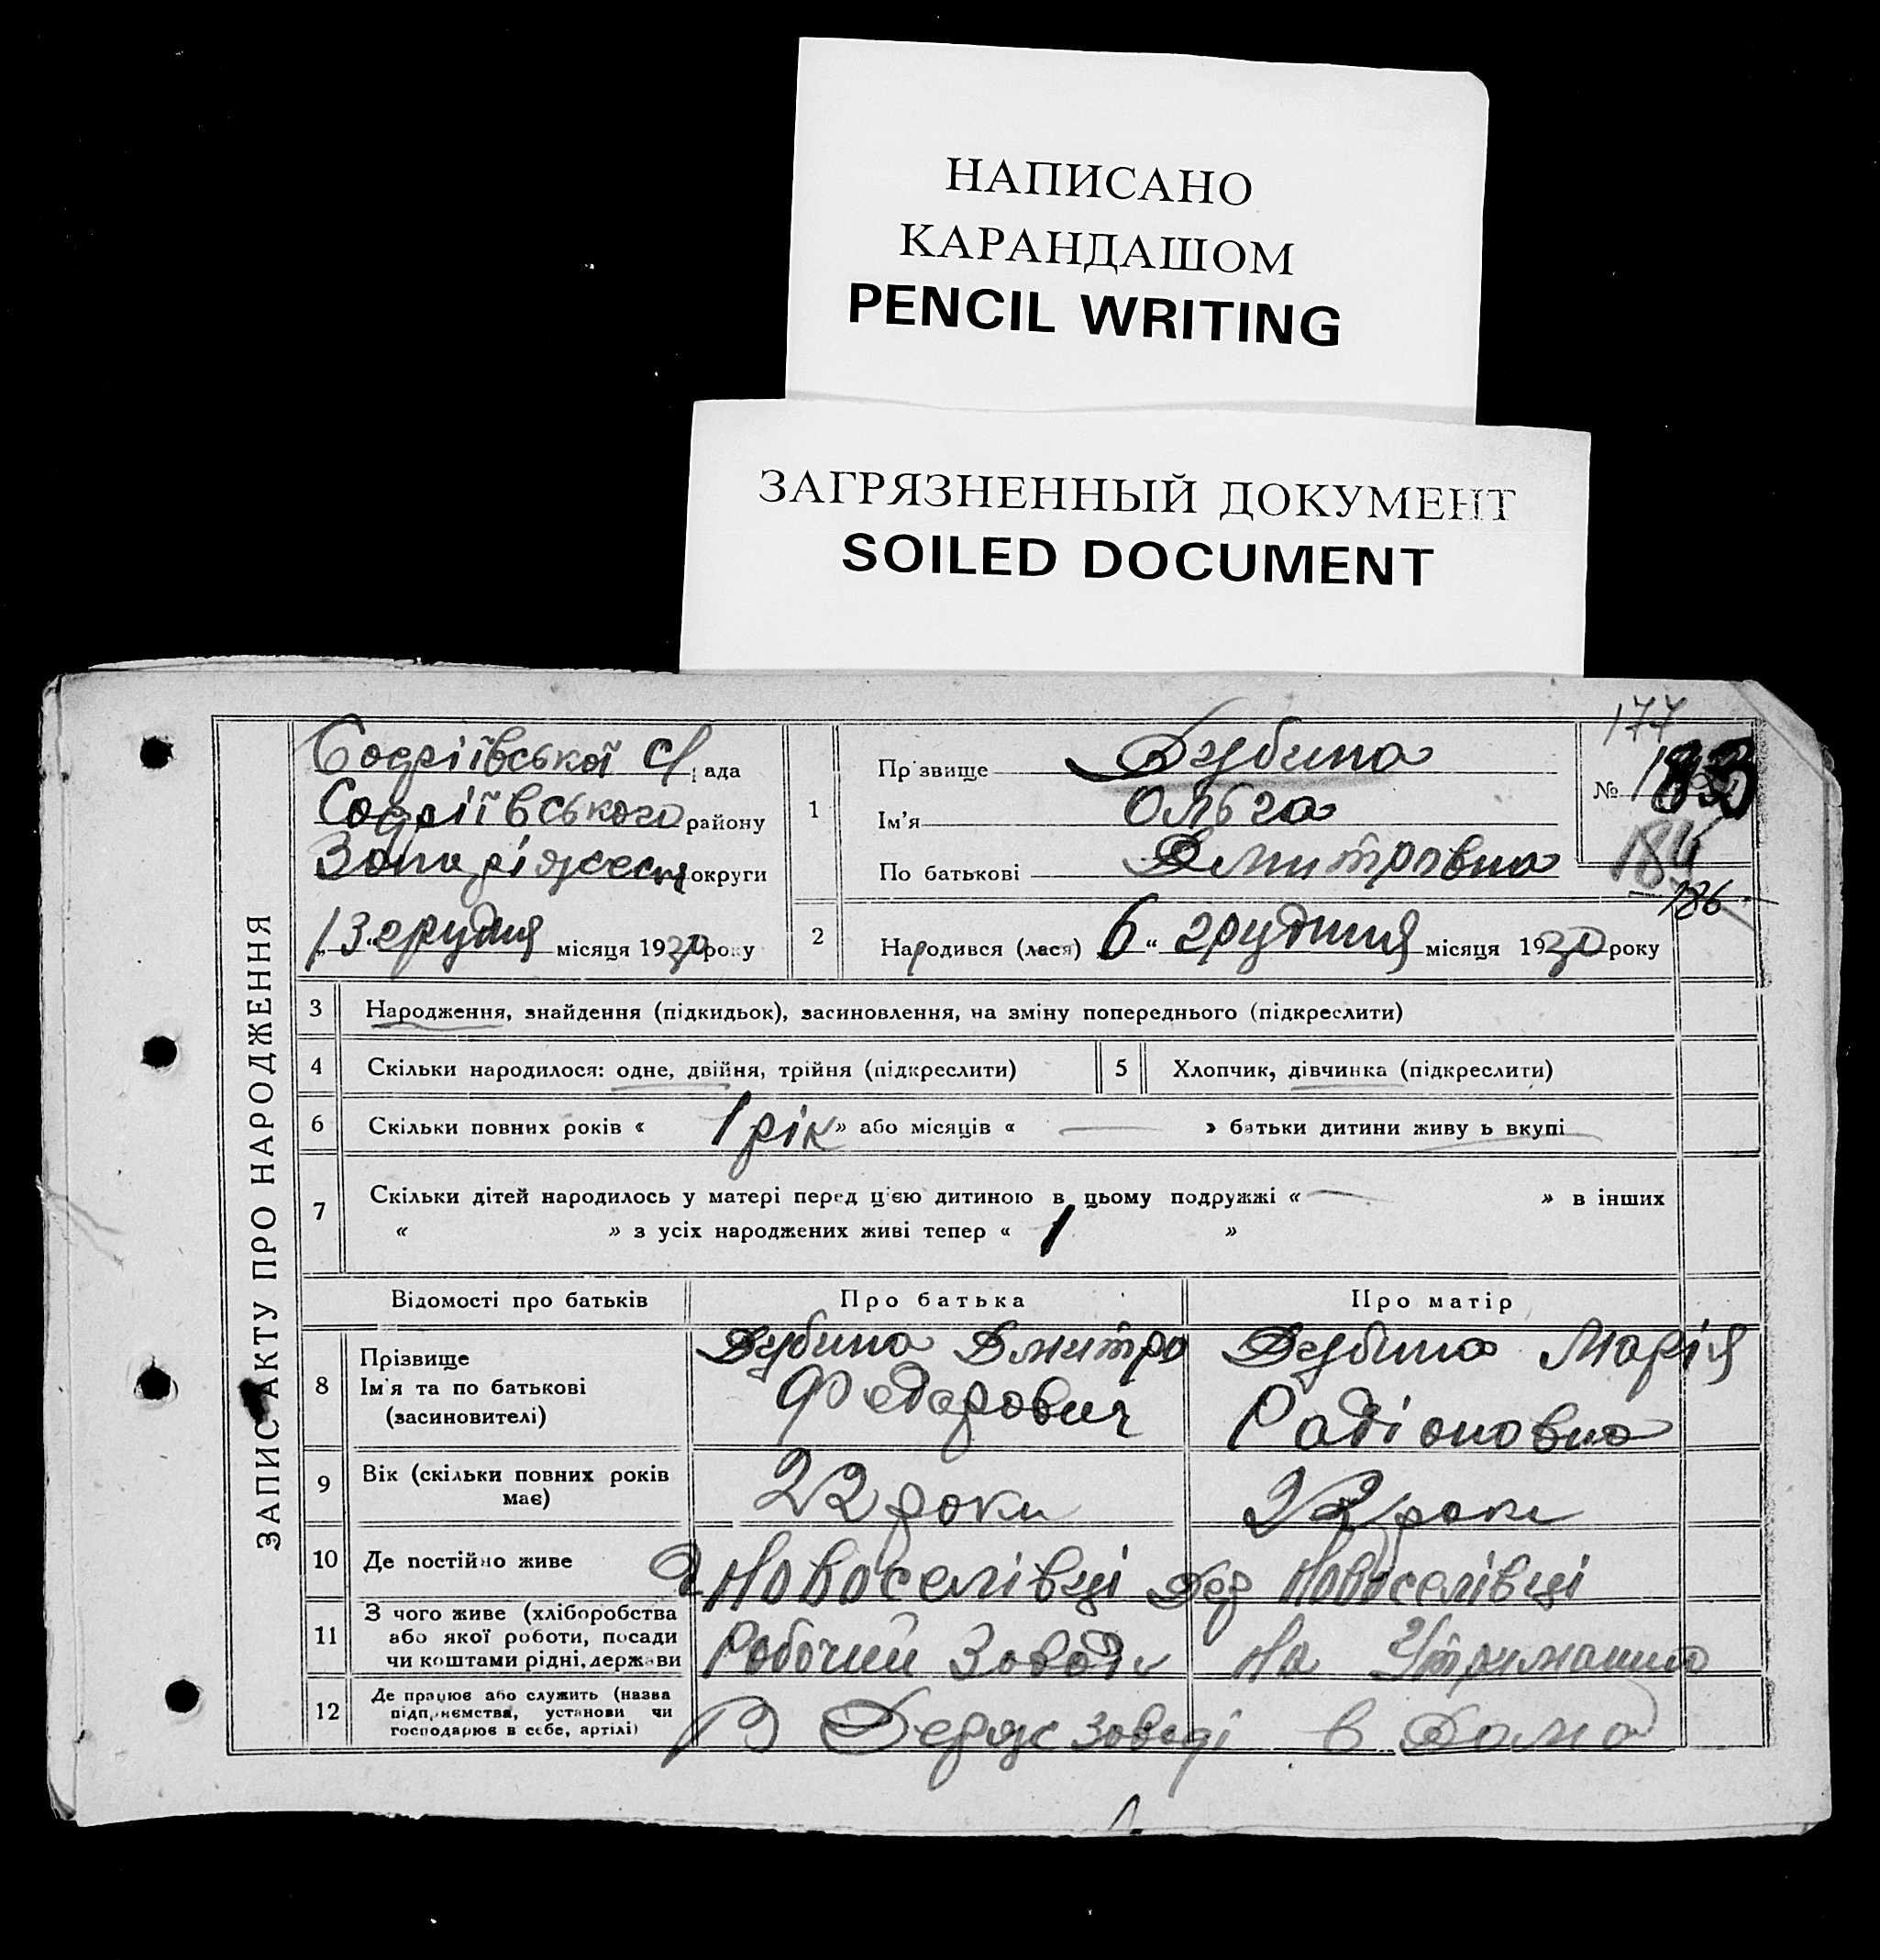 НАПИСАНО
КАРАНДАШОМ
PENCIL WRITING
ЗАГРЯЗНЕННЫЙ ДОКУМЕНТ
SOILED DOCUMENT
ЗАПИС АКТУ ПРО НАРОДЖЕННЯ
177
Софіївської С/ рада
Софіївського району
округи
13 грудня місяця 1930 року
1
Прізвище Дубина
Ім'я Ольга
По батькові Дмитровна
№ 183
184
186
2
Народився (лася) 6 " грудння місяця 1930 року
3 Народження, знайдення (підкидьок), засиновлення, на зміну попереднього (підкреслити)
4 Скільки народилося: одне, двійня, трійня (підкреслити) 5 Хлопчик, дівчинка (підкреслити)
6 Скільки повних років « 1 рік » або місяців « — » батьки дитини живуть вкупі
7 Скільки дітей народилось у матері перед цією дитиною в цьому подружжі « — » в інших
« » з усіх народжених живі тепер « 1 »
Відомості про батьків Про батька Про матір
8 Прізвище Ім'я та по батькові (засиновителі)
Дубина Дмитро
Федорович
Дубина Марія
Радіоновна
9 Вік (скільки повних років має) 22 роки 22 роки
10 Де постійно живе Д Новоселівці Дер Новоселівці
11 З чого живе (хліборобства
або якої роботи, посади
чи коштами рідні, держави
Робочий Завода На Утриманню
12 Де працює або служить (назва
підприємства, установи чи
господарює в себе, артілі)
В Держ заводі в Дома